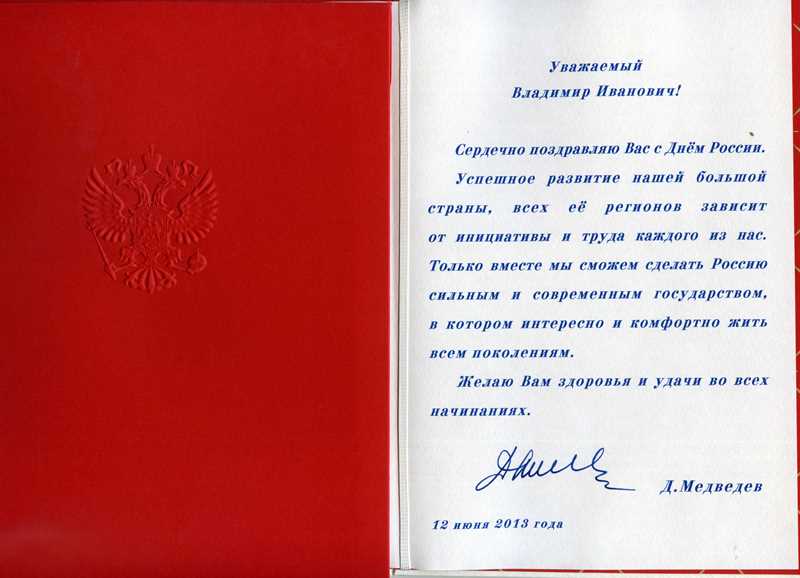 Уважаемый
Владимир Иванович!
Сердечно поздравляю Вас с Днём России.
Успешное развитие нашей большой
страны, всех её регионов зависит
от инициативы и труда каждого из нас.
Только вместе мы сможем сделать Россию
сильным и современным государством,
в котором интересно и комфортно жить
всем поколениям.
Желаю Вам здоровья и удачи во всех
начинаниях.
Д.Медведев
12 июня 2013 года